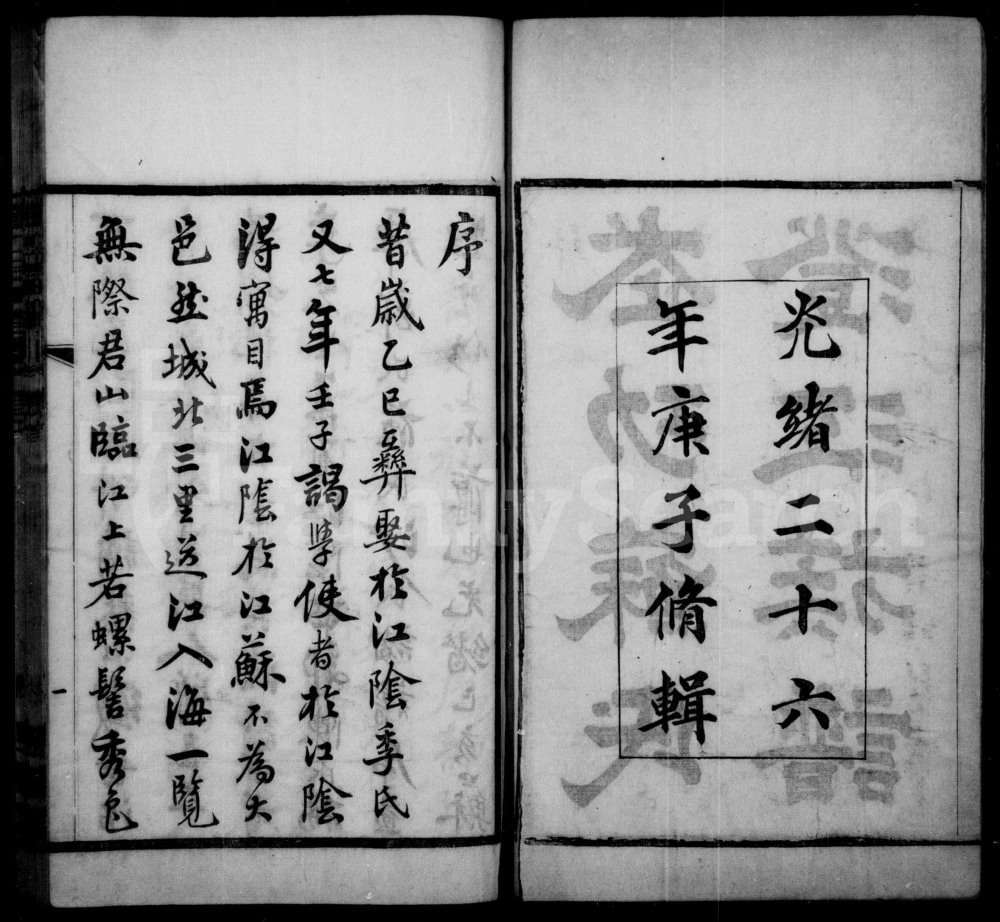 光緒二十六
年庚子脩輯
序
昔歲乙巳彝娶於江陰季氏
又七年壬子謁學使者於江陰
得寓目焉江陰於江蘇不為大
邑然城北三里送江入海一覽
無際君山臨江上若螺髻秀色
一
FamilySearch